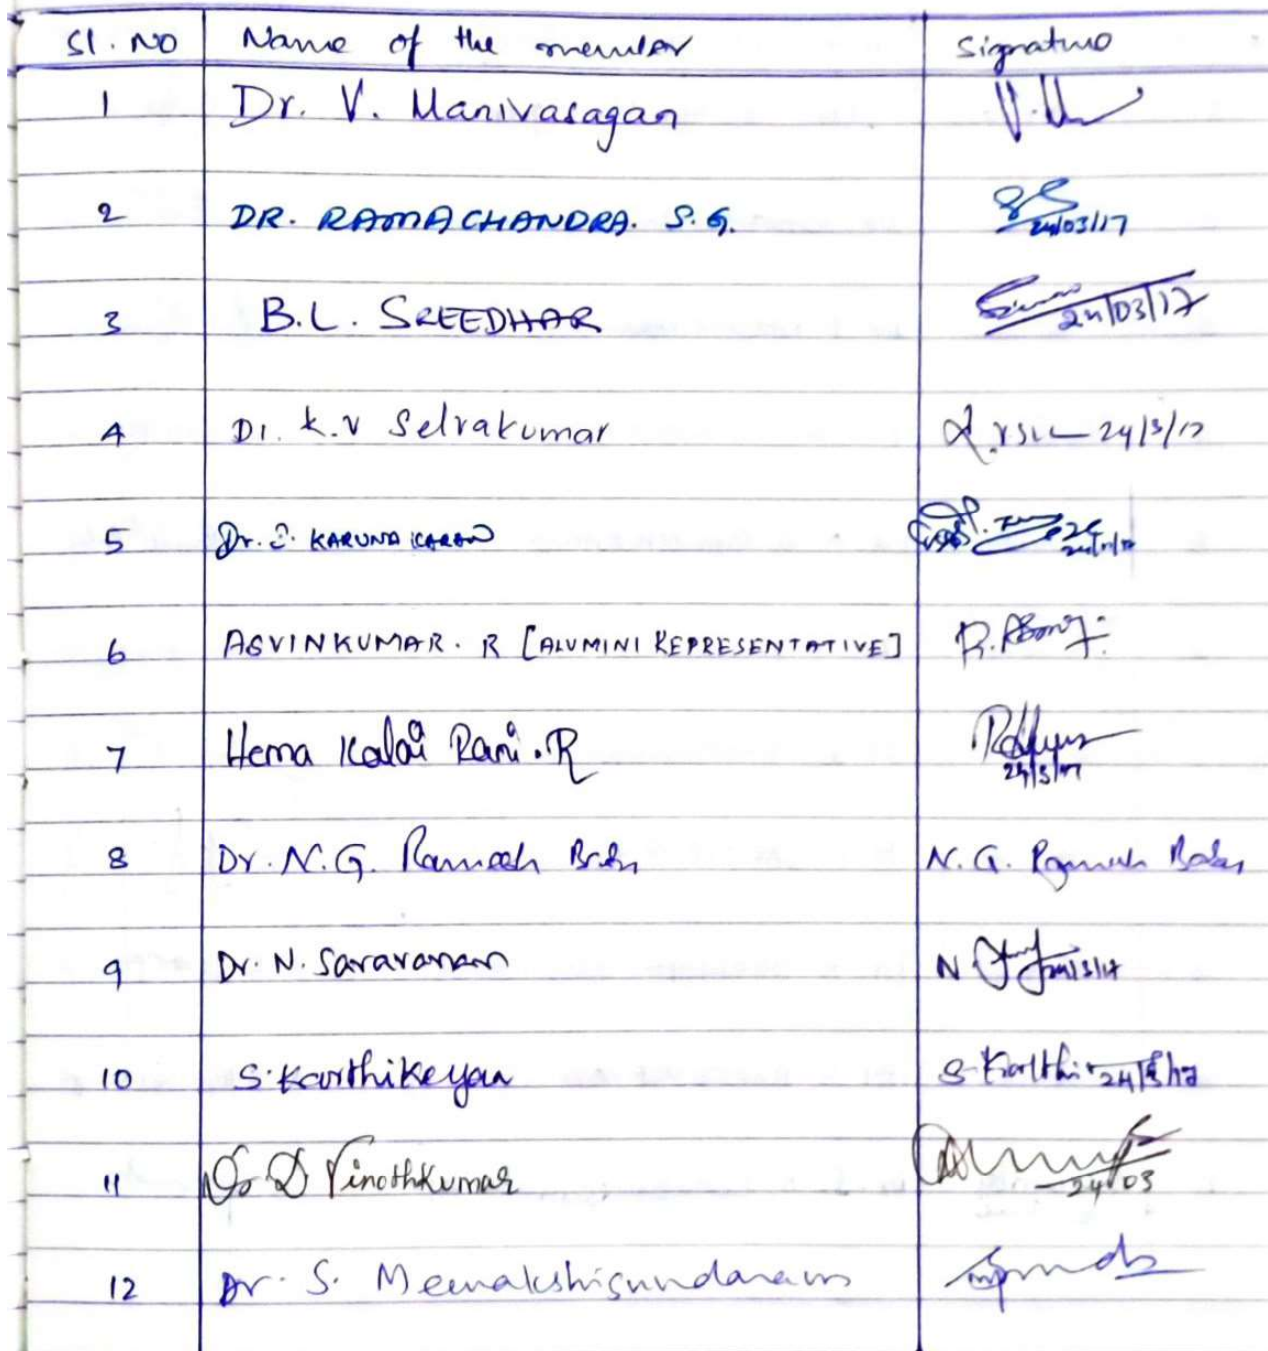 Sl. No Name of the member Signature
1 Dr. V. Manivasagan
2 DR. RAMACHANDRA. S. G. 24/03/17
3 B.L. SREEDHAR 24/03/17
4 Dr. K.V Selvakumar 24/3/17
5 Dr. E. KARUNAKARAN
6 ASVINKUMAR. R [ALUMINI REPRESENTATIVE]
7 Hema Kalai Rani. R 24/3/17
8 Dr. N.G. Ramesh Babu N. G. Ramesh Babu
9 Dr. N. Saravanan N 24/3/17
10 S. Karthikeyan S. Karthi 24/3/17
11 Dr D Vinothkumar 24/03
12 Dr. S. Meenakshisundaram